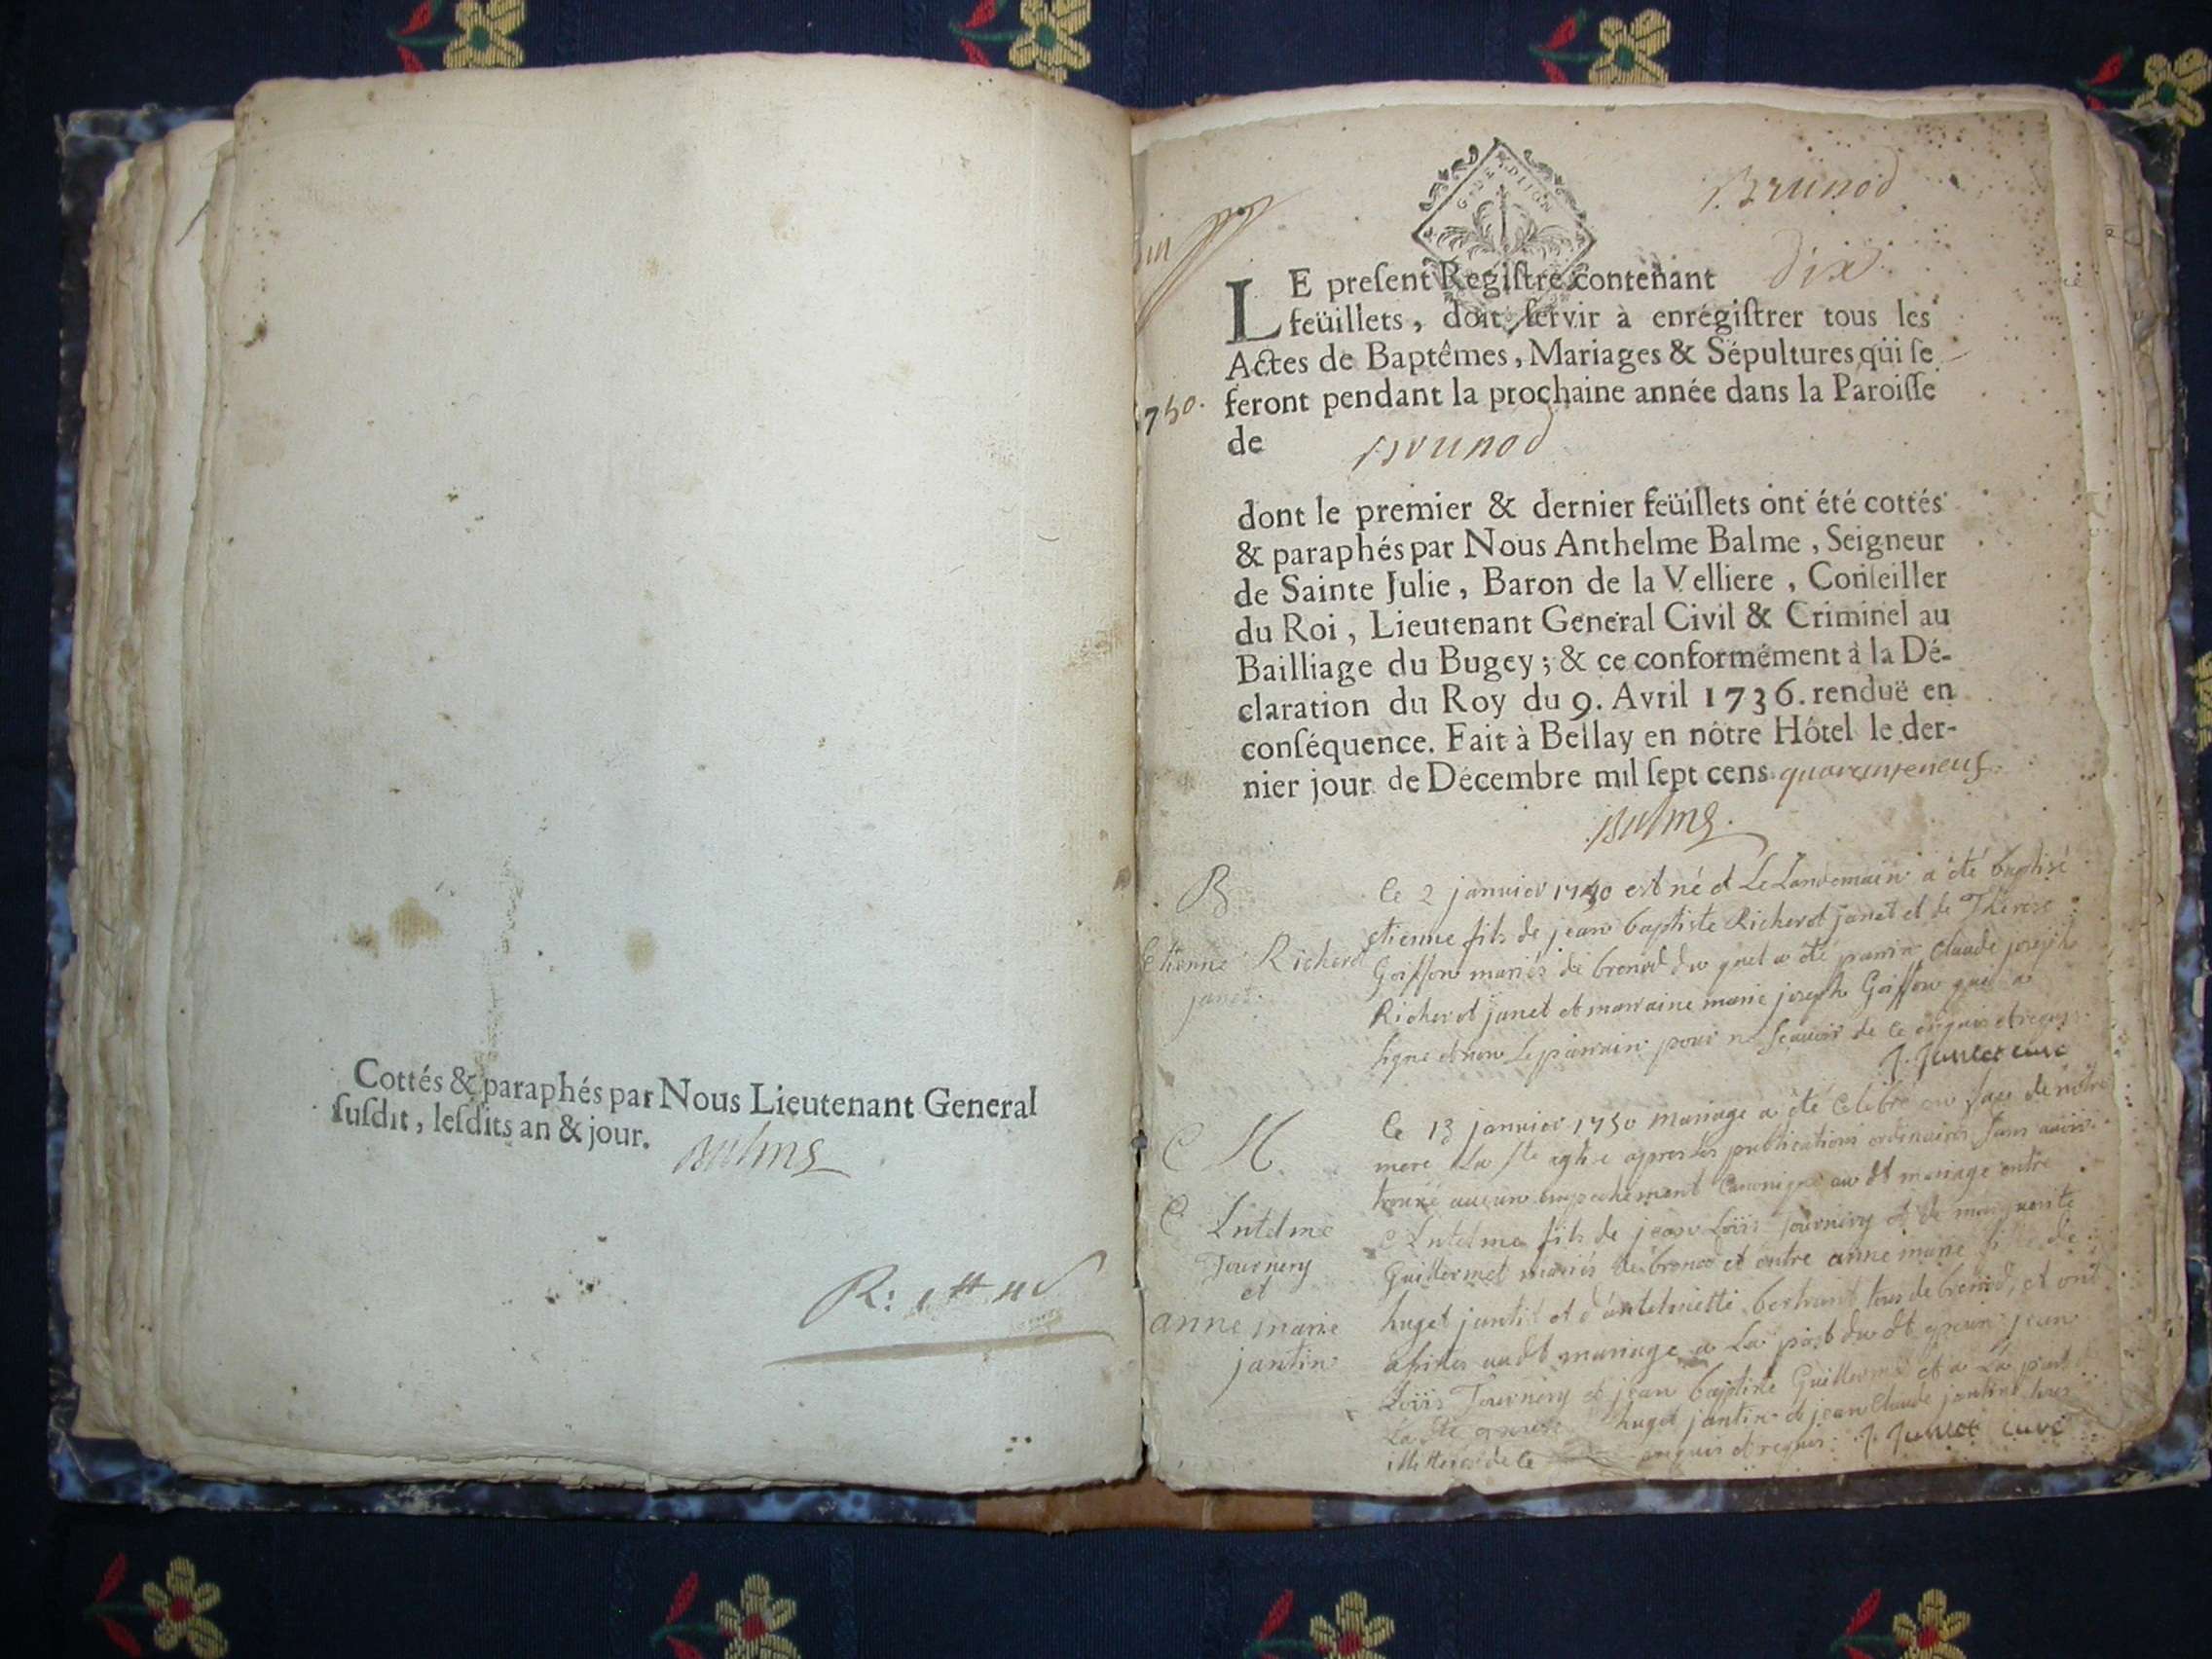 Cottés & paraphés par Nous Lieutenant General
ſuſdit, leſdits an & jour.
Balme
G. DE DIJON
Brunod
dix
LE preſent Regiſtre contenant
feüillets, doit ſervir à enrégiſtrer tous les
Actes de Baptêmes, Mariages & Sépultures qui ſe
feront pendant la prochaine année dans la Paroiſſe
750.
de Brunod
dont le premier & dernier feüillets ont été cottés
& paraphés par Nous Anthelme Balme, Seigneur
de Sainte Julie, Baron de la Velliere, Conſeiller
du Roi, Lieutenant General Civil & Criminel au
Bailliage du Bugey; & ce conformément à la Dé-
claration du Roy du 9. Avril 1736. renduë en
conſéquence. Fait à Bellay en nôtre Hôtel le der-
nier jour de Décembre mil ſept cens quarenteneuf.
Balme
B
Etienne Richerot
janet.
Le 2 janvier 1750 est né et Le Landemain a été baptisé
etienne fils de jean baptiste Richerot janet et de Thérese
Goiffon mariés de brenod du quel a été parrin Claude joseph
Richerot janet et marraine marie joseph Goiffon qui a
signé et non Le parrain pour ne scavoir de ce enquis et requis.
J. Jullet curé
M.
Antelme
Tournery
et
anne marie
jantin
Le 13 janvier 1750 mariage a été Celebré en face de nôtre
mere La Ste eglise apres les publications ordinaires sans avoir
trouvé aucun empechement Canonique au dt mariage entre
Antelme fils de jean Loüis Tournery et de marguerite
Guillermet mariés de brenod et entre anne marie fille de
huget jantin et d'antelmette bertrand tous de brenod, et ont
assistés audt mariage a La part du dt epoux jean
Loüis Tournery et jean baptiste Guillermet et a La part
La dte epouse huget jantin et jean Claude jantin tous
illetterés de ce enquis et requis. J. Jullet curé